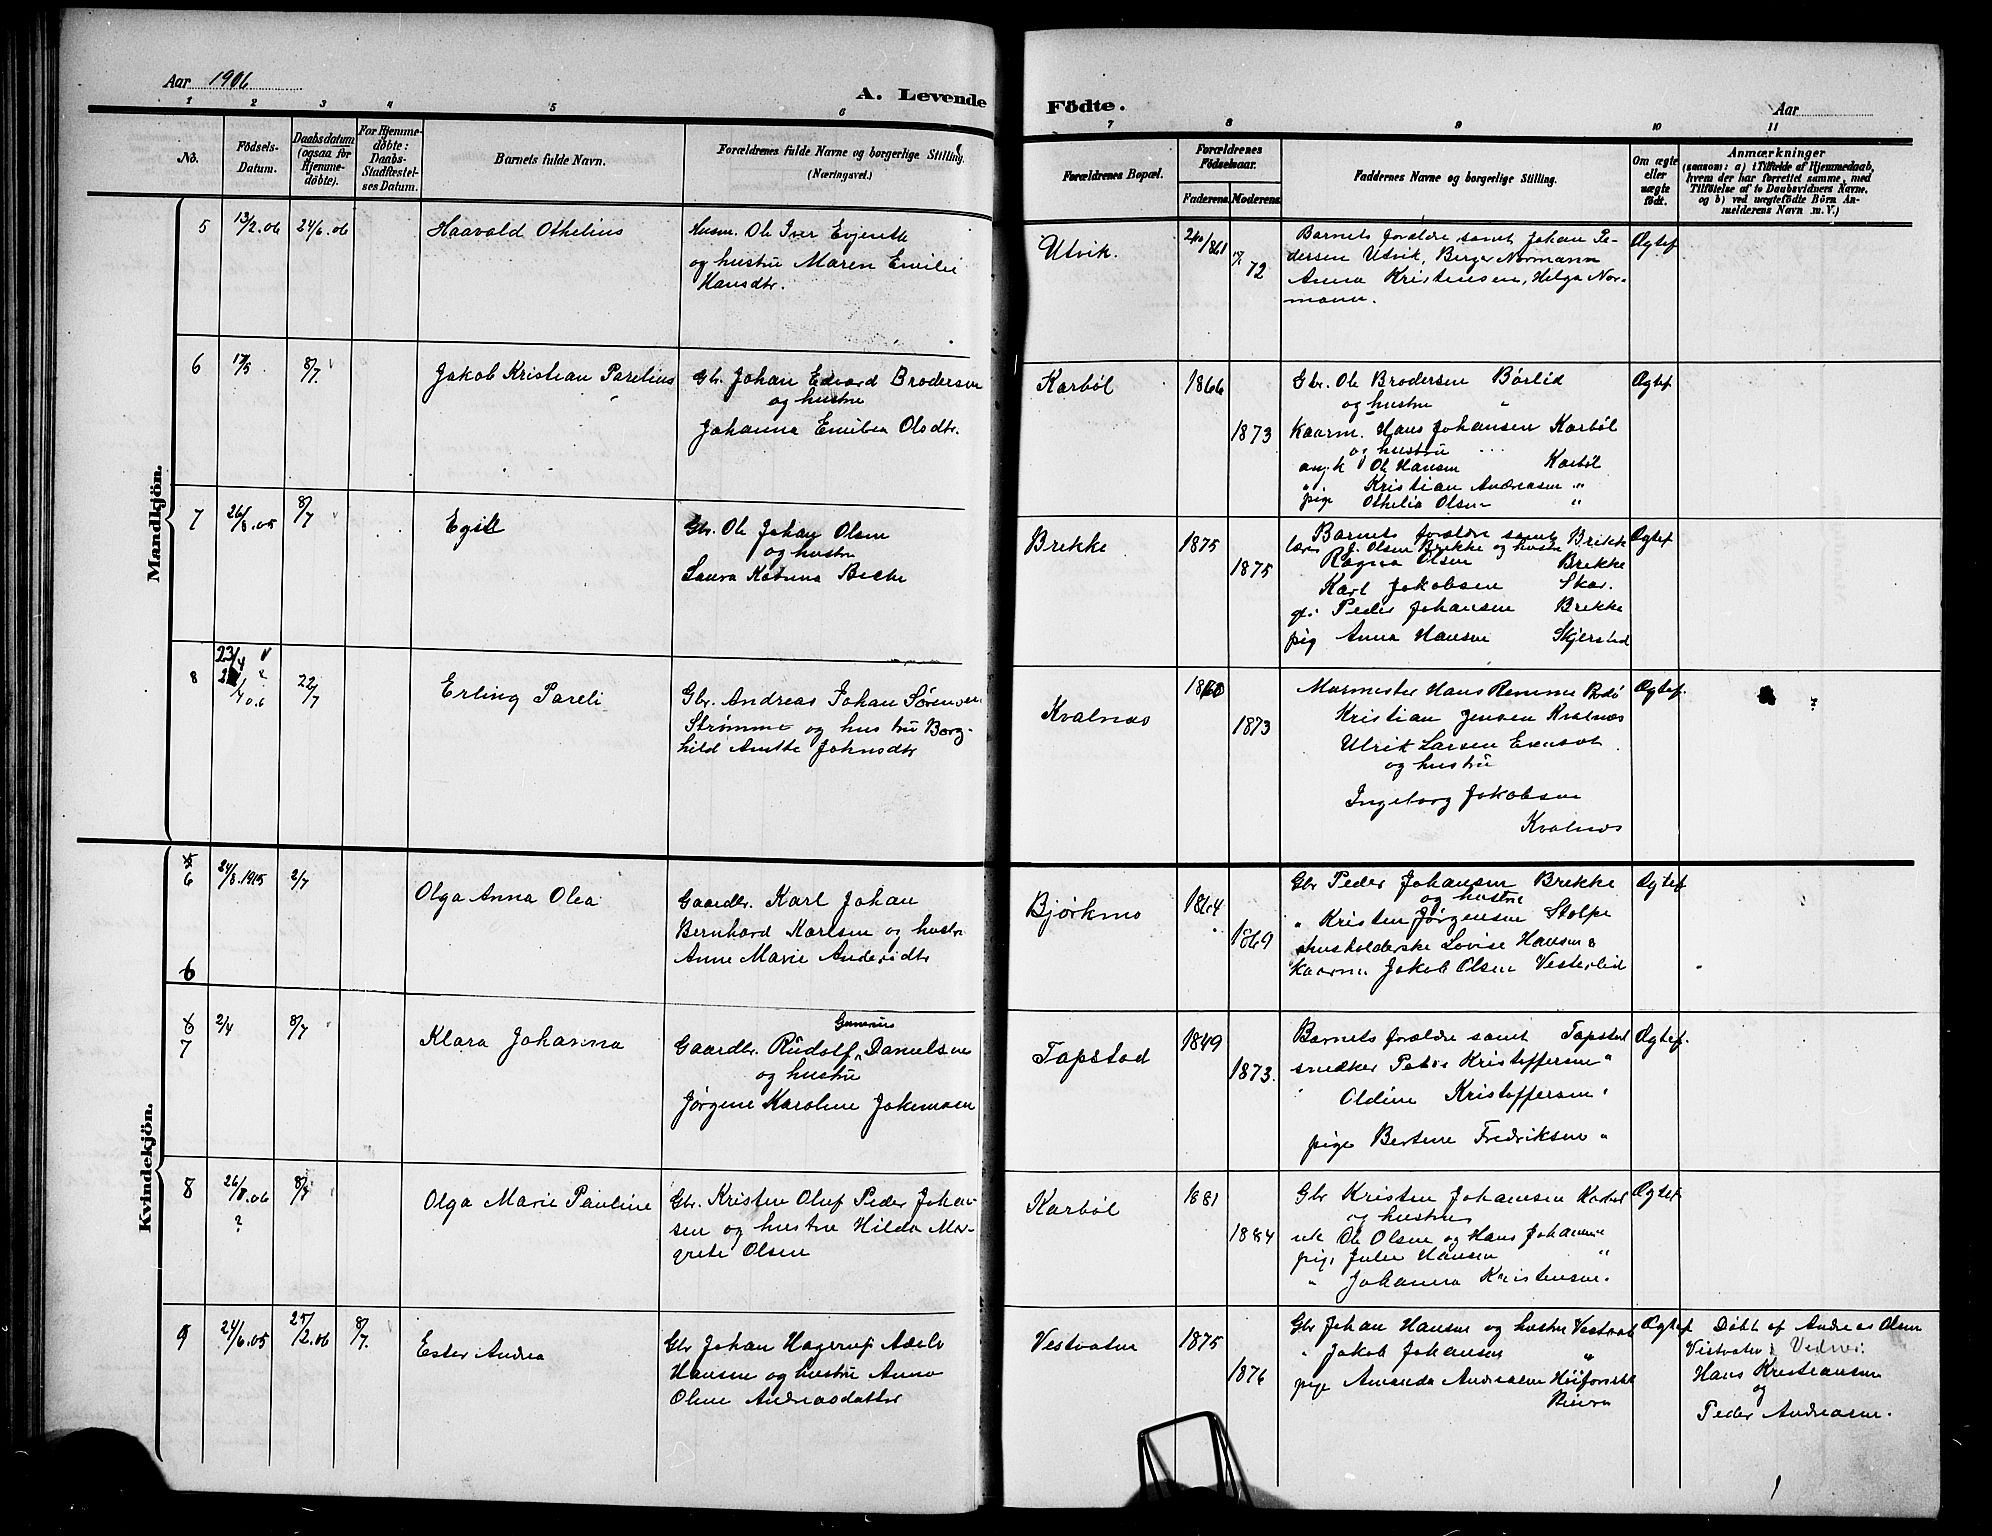 Aar 1906
A. Levende Födte.
Aar
1 2 3 4 5 6 7 8 9 10 11
No.
Födsels-Datum.
Daabsdatum (ogsaa for Hjemmedöbte).
For Hjemmedöbte: Daabs-Stadfæstelses Datum.
Barnets fulde Navn.
Forældrenes fulde Navne og borgerlige Stilling. (Næringsvei.)
Forældrenes Bopæl.
Forældrenes Födselsaar.
Faderens. Moderens.
Faddernes Navne og borgerlige Stilling.
Om ægte eller uægte födt.
Anmærkninger
(saasom: a) i Tilfælde af Hjemmedaab,
hvem der har forrettet samme, med
Tilföielse af to Daabsvidners Navne,
og b) ved uægtefödte Börn An-
melderens Navn m. V.)
Mandkjön.
5 13/2.06 24/6.06 Haavald Othelius
Husm. Ole Iver Evjenth
og hustru Maren Emilie
Hansdtr.
Utvik. 72
Barnets forældre samt Johan Pe-
dersen Utvik, Berger Normann
Anna Kristensen, Helga Nor-
mann.
Ægtef
6 17/5 8/7. Jakob Kristian Parelius
Gbr. Johan Edvard Brodersen
og hustru
Johanna Emilia Olsdtr.
Karbøl 1866 1873
Gbr. Ole Brodersen Børlid
og hustru
Kaarm. Hans Johansen Karbøl
og hustru
ungk Ole Hansen Karbøl
" Kristian Andreasen "
pige Othelia Olsen "
Ægtef
7 26/8.05 8/7 Egill
Gbr. Ole Johan Olsen
og hustru
Laura Katrina
Brekke 1875 1875
Barnets forældre samt Brekke
lærer J. Olsen Brekke og hustru
Ragna Olsen Brekke
Karl Jakobsen Skar.
Peder Johansen Brekke
pig Anna Hansen Skjerstad
Ægtef
8 23/4 22/7 Erling Pareli
Gbr. Andreas Johan Sørensen
Strømme og hustru Borg-
hild Anette Johnsdtr
Kvalnæs 1873
Murmester Hans Remme Bodø
Kristian Jensen Kvalnæs
Ulrik Larsen
og hustru
Ingeborg Jakobsen
Kvalnæs
Ægtef.
Kvindekjön.
5
6 24/8.1905 2/7 Olga Anna Olea
6
Gaardbr. Karl Johan
Bernhard Karlsen og hustru
Anne Marie Andersdtr
Bjørkmo 1864 1869
Gbr Peder Johansen Brekke
og hustru
" Kristen Jørgensen Stolpe
husholderske Lovise Hansen
Kaarm. Jakob Olsen Vesterlid
Ægtef
6
7 2/4 8/7 Klara Johanna
Gunerius
Gaardbr. Rudolf Danielsen
og hustru
Jørgine Karoline Jokumsen
Tapstad 1849 1873.
Barnets forældre samt Tapstad
snedker Peter Kristoffersen "
Oldine Kristoffersen "
pige Bertine Fredriksen "
Ægtef.
8 26/8.06 8/7 Olga Marie Pauline
?
Gbr. Kristen Oluf Peder Johan-
sen og hustru Hilda Mar-
grete Olsen
Karbøl 1881 1884
Gbr Kristen Johansen Karbøl
og hustru
uk Ole Olsen og Hans Johansen "
pige Julie Hansen "
" Johanna Kristensen.
Ægtef.
9 24/6.05 25/2.06 8/7. Ester Andrea
Gbr Johan Hagerup Adelo
Hansen og hustru Anna
Oline Andreasdatter
Vestvatn 1875 1876
Gbr Johan Hansen og hustru Vestvatn
" Jakob Johansen "
pige Amanda Andreasen
Ægtef
Døbt af Andreas Olsen
Vestvatn. Vidner:
Hans Kristiansen
og
Peder Andreasen.